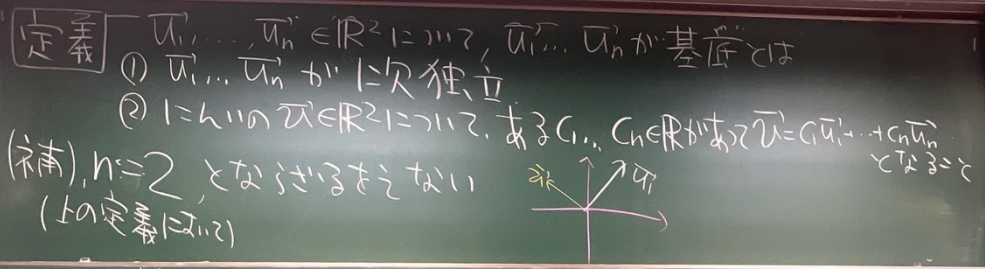 定義 u₁⃗, ..., uₙ⃗ ∈ℝ²について, u₁⃗...uₙ⃗が基底とは
① u₁⃗...uₙ⃗が1次独立
② にんいのv⃗∈ℝ²について, あるC₁...Cₙ∈ℝがあってv⃗=C₁u₁⃗+...+Cₙuₙ⃗
となること
(補), n=2, とならざるをえない
(上の定義において)
u₁⃗